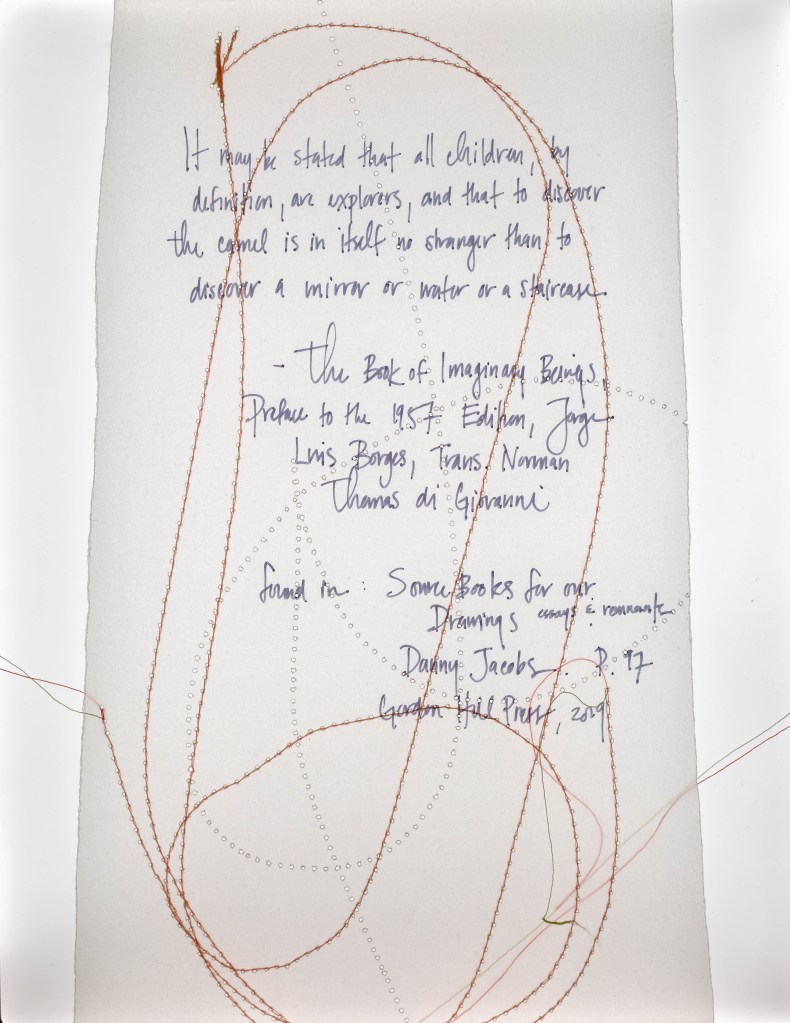 It may be stated that all children, by
definition, are explorers, and that to discover
the camel is in itself no stranger than to
discover a mirror or water or a staircase.
- The Book of Imaginary Beings,
Preface to the 1957 Edition, Jorge
Luis Borges, Trans. Norman
Thomas di Giovanni
found in : Source Books for our
Drawings essays & remnants
Danny Jacobs. P. 97
Gordon Hill Press, 2019